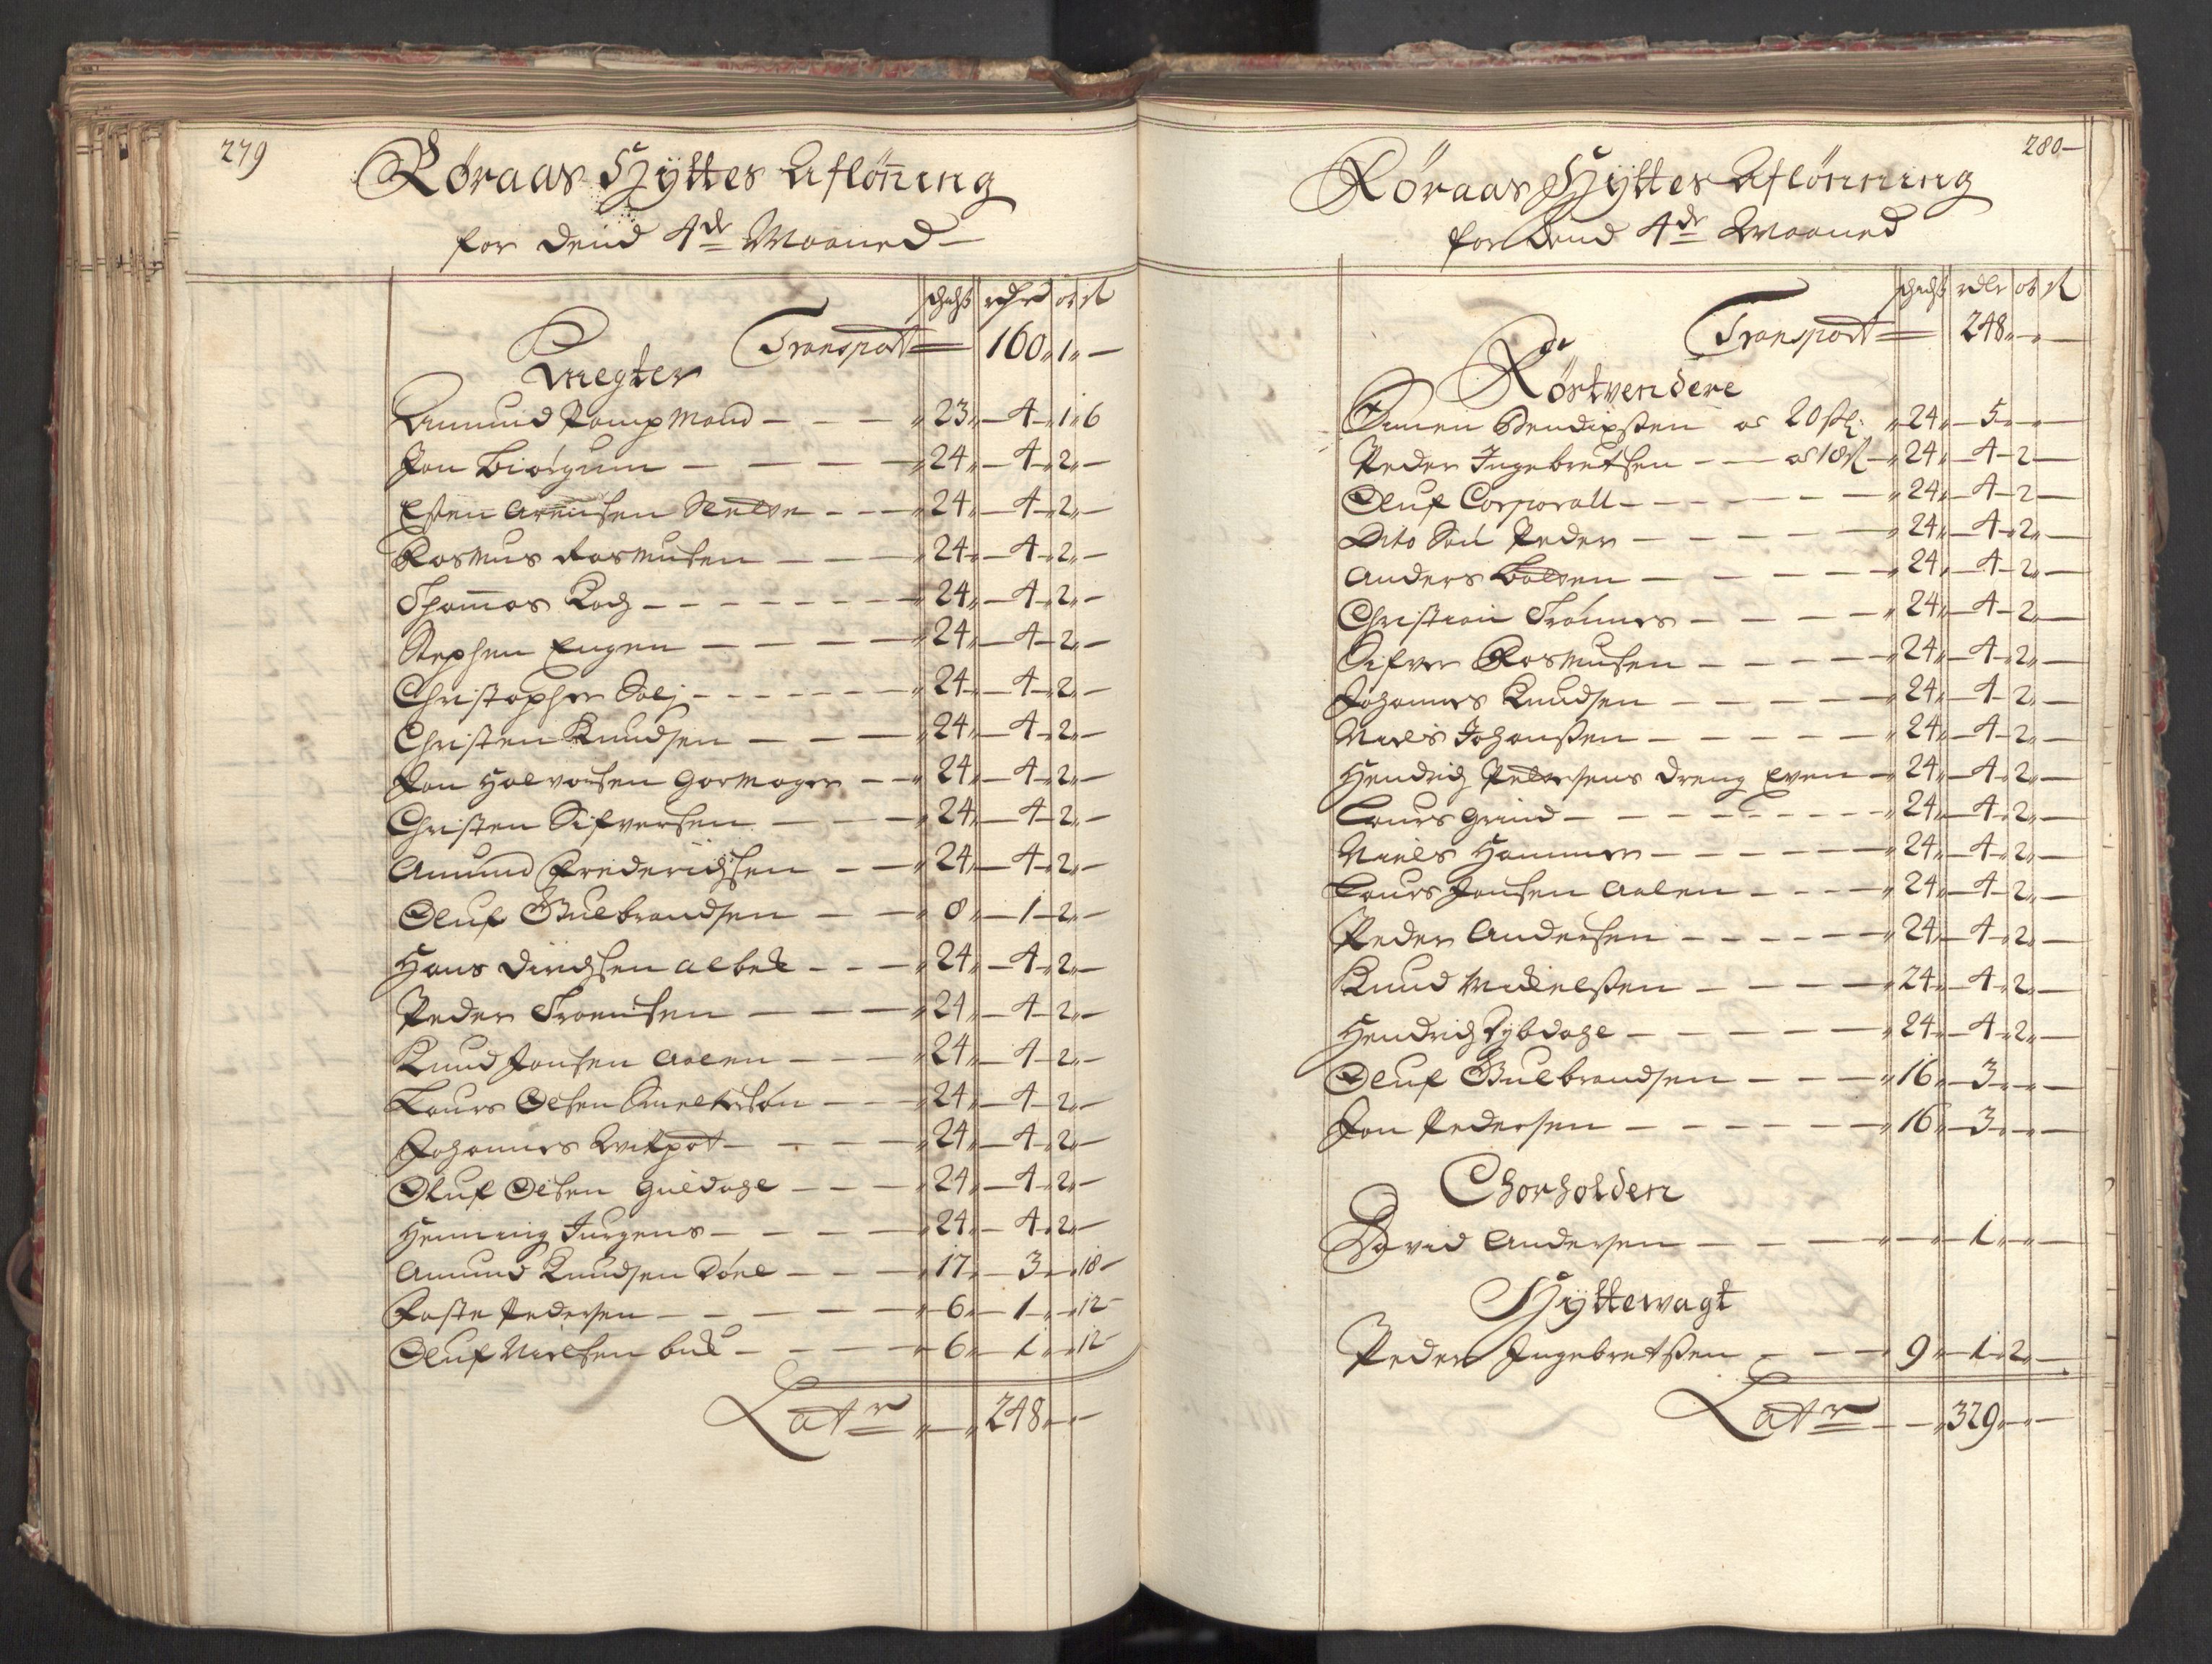 279
Røraas Hÿttes Aflønning
for Dend 4de Maaned
schicht rdlr ort s
Transport 160 " 1 " —
Knegter
Amund Kampmand — 23 " 4 " 1 " 6
Jon Biørgum — 24 " 4 " 2 " —
Esten Arensen — 24 " 4 " 2 " —
Rasmus Rasmusen — 24 " 4 " 2 " —
Thomas Koch — 24 " 4 " 2 " —
Stephen Engen — 24 " 4 " 2 " —
Christopher Solj — 24 " 4 " 2 " —
Christen Knudsen — 24 " 4 " 2 " —
Jon Halvorsen Garmager — 24 " 4 " 2 " —
Christen Sifversen — 24 " 4 " 2 " —
Amund Frederichsen — 24 " 4 " 2 " —
Oluf Gulbrandsen — 8 " 1 " 2 " —
Hans Dirichsen Albek — 24 " 4 " 2 " —
Peder Troensen — 24 " 4 " 2 " —
Knud Jonsen Aalen — 24 " 4 " 2 " —
Laurs Olsen Smeltersøn — 24 " 4 " 2 " —
Johannes Witpot — 24 " 4 " 2 " —
Oluf Olsen Guldahl — 24 " 4 " 2 " —
Henning Jurgens — 24 " 4 " 2 " —
Amund Knudsen Døel — 17 " 3 " — " 18
Faste Pedersen — 6 " 1 " — " 12
Oluf Nielsen buk — 6 " 1 " — " 12
Latr — " 248 " — " —
280
Røraas Hÿttes Aflønning
for Dend 4de Maaned
schicht rdlr ort s
Transport 248 " — " —
Røstvendere
Simen Bendixsen a 20 s — 24 " 5 " — " —
Peder Ingebretsen — a 18 s — 24 " 4 " 2 " —
Oluf Corporall — 24 " 4 " 2 " —
Dito Søn Peder — 24 " 4 " 2 " —
Anders Bolden — 24 " 4 " 2 " —
Christian Trønnes — 24 " 4 " 2 " —
Sifver Rasmusen — 24 " 4 " 2 " —
Johannes Knudsen — 24 " 4 " 2 " —
Niels Johansen — 24 " 4 " 2 " —
Hendrich Pettersens Dreng Even — 24 " 4 " 2 " —
Laurs Grind — 24 " 4 " 2 " —
Niels Hammer — 24 " 4 " 2 " —
Laurs Jonsen Aalen — 24 " 4 " 2 " —
Peder Andersen — 24 " 4 " 2 " —
Knud Mikelsen — 24 " 4 " 2 " —
Hendrich Rybdahl — 24 " 4 " 2 " —
Oluf Gulbrandsen — 16 " 3 " — " —
Jon Pedersen — 16 " 3 " — " —
Chorholder
David Andersen — " 1 " — " —
Hÿttewagt
Peder Ingebretsen — 9 " 1 " 2 " —
Latr — " 329 " — " —